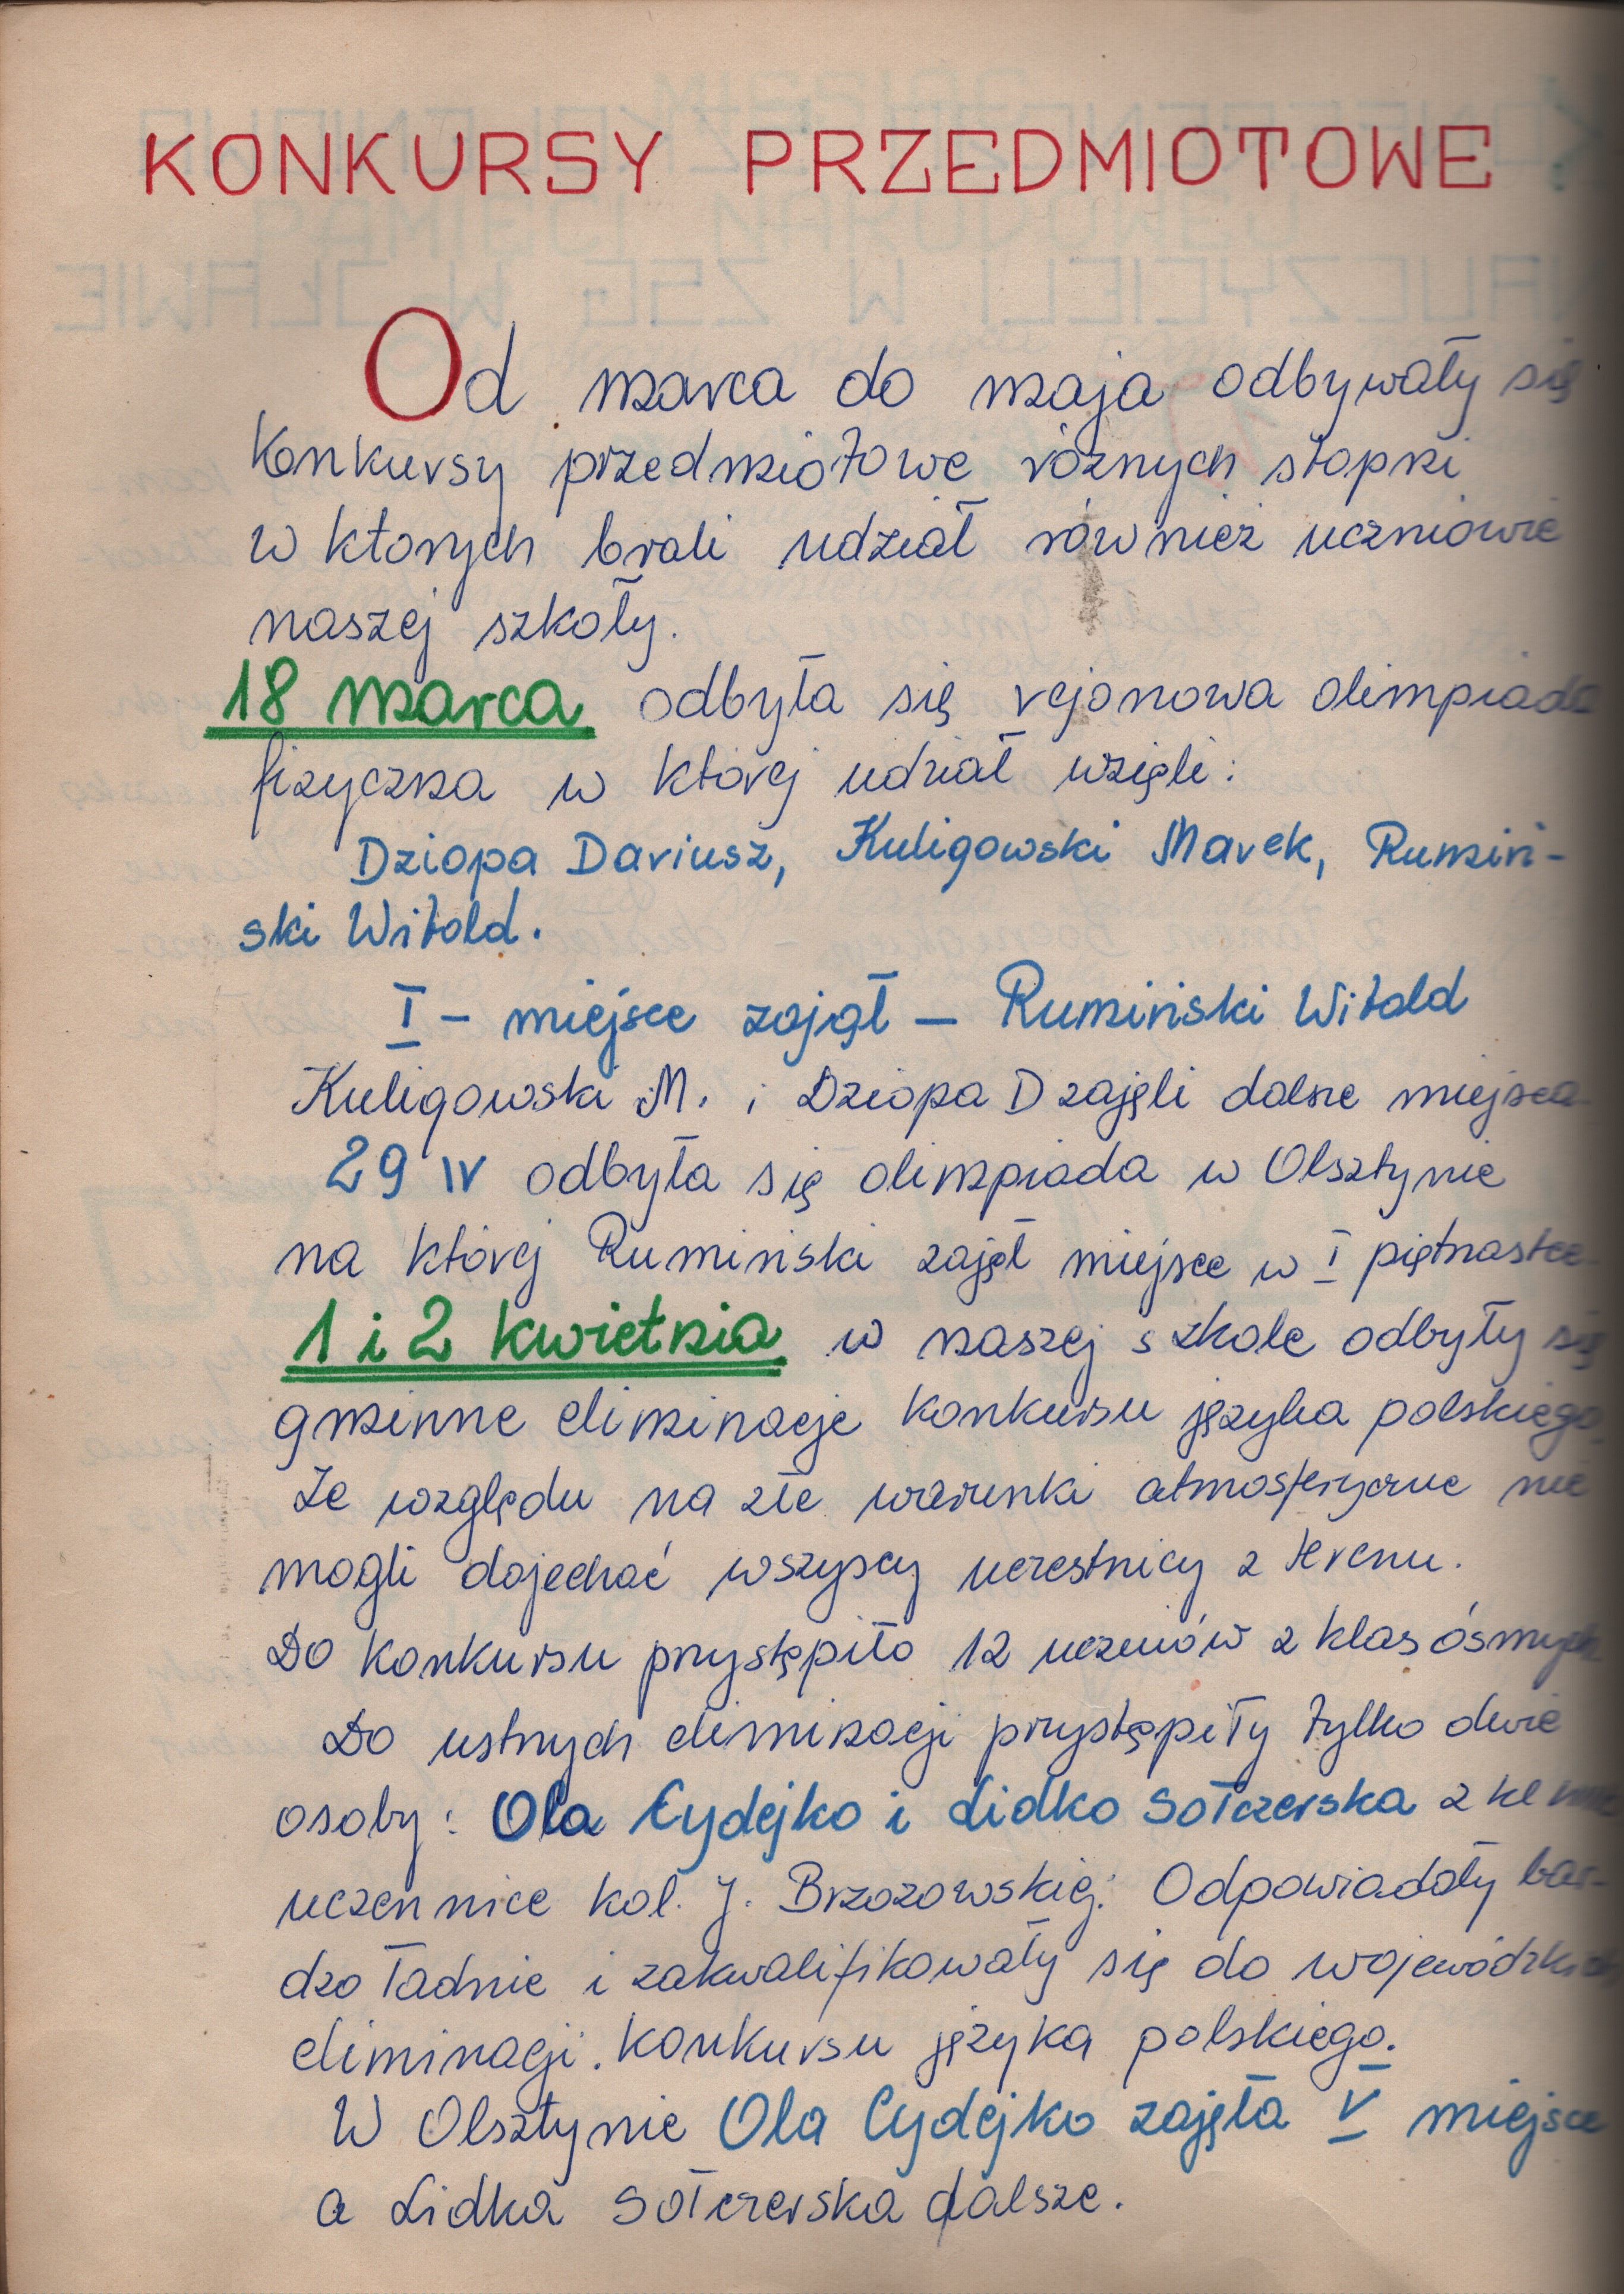 KONKURSY PRZEDMIOTOWE
Od marca do maja odbywały się
konkursy przedmiotowe różnych stopni
w których brali udział również uczniowie
naszej szkoły.
18 marca odbyła się rejonowa olimpiada
fizyczna w której udział wzięli:
Dziopa Dariusz, Kuligowski Marek, Rumiń-
ski Witold.
I - miejsce zajął - Rumiński Witold
Kuligowski M. i Dziopa D zajęli dalsze miejsca
29 IV odbyła się olimpiada w Olsztynie
na której Rumiński zajął miejsce w I piętnastce
1 i 2 kwietnia w naszej szkole odbyły się
gminne eliminacje konkursu języka polskiego
Ze względu na złe warunki atmosferyczne nie
mogli dojechać wszyscy uczestnicy z terenu.
Do konkursu przystąpiło 12 uczniów z klas ósmych
Do ustnych eliminacji przystąpiły tylko dwie
osoby: Ola Cydejko i Lidka Sołczerska z kl
uczennice kol. J. Brzozowskiej. Odpowiadały bar-
dzo ładnie i zakwalifikowały się do wojewódzkich
eliminacji. konkursu języka polskiego.
W Olsztynie Ola Cydejko zajęła V miejsce
a Lidka Sołczerska dalsze.